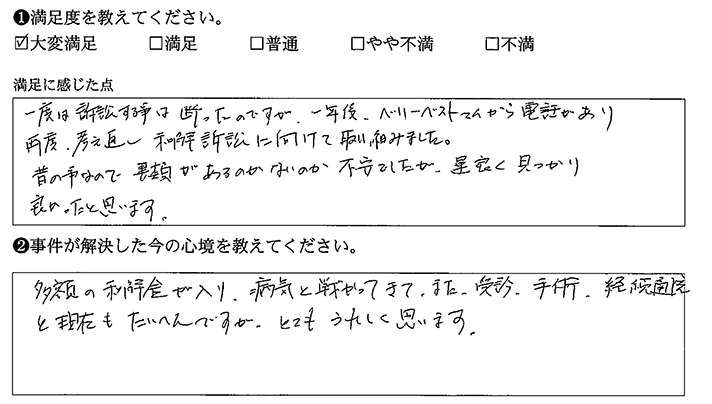 ❶満足度を教えてください。
☑大変満足 □満足 □普通 □やや不満 □不満
満足に感じた点
一度は訴訟する事は断ったのですが、一年後、ベリーベストさんから電話があり
再度、考え直し 和解訴訟に向けて取り組みました。
昔の事なので書類があるのかないのか不安でしたが、運良く見つかり
良かったと思います。
❷事件が解決した今の心境を教えてください。
多額の和解金が入り、病気と戦かってきて、また、受診、手術、経続通院
と現在もたいへんですが、とてもうれしく思います。